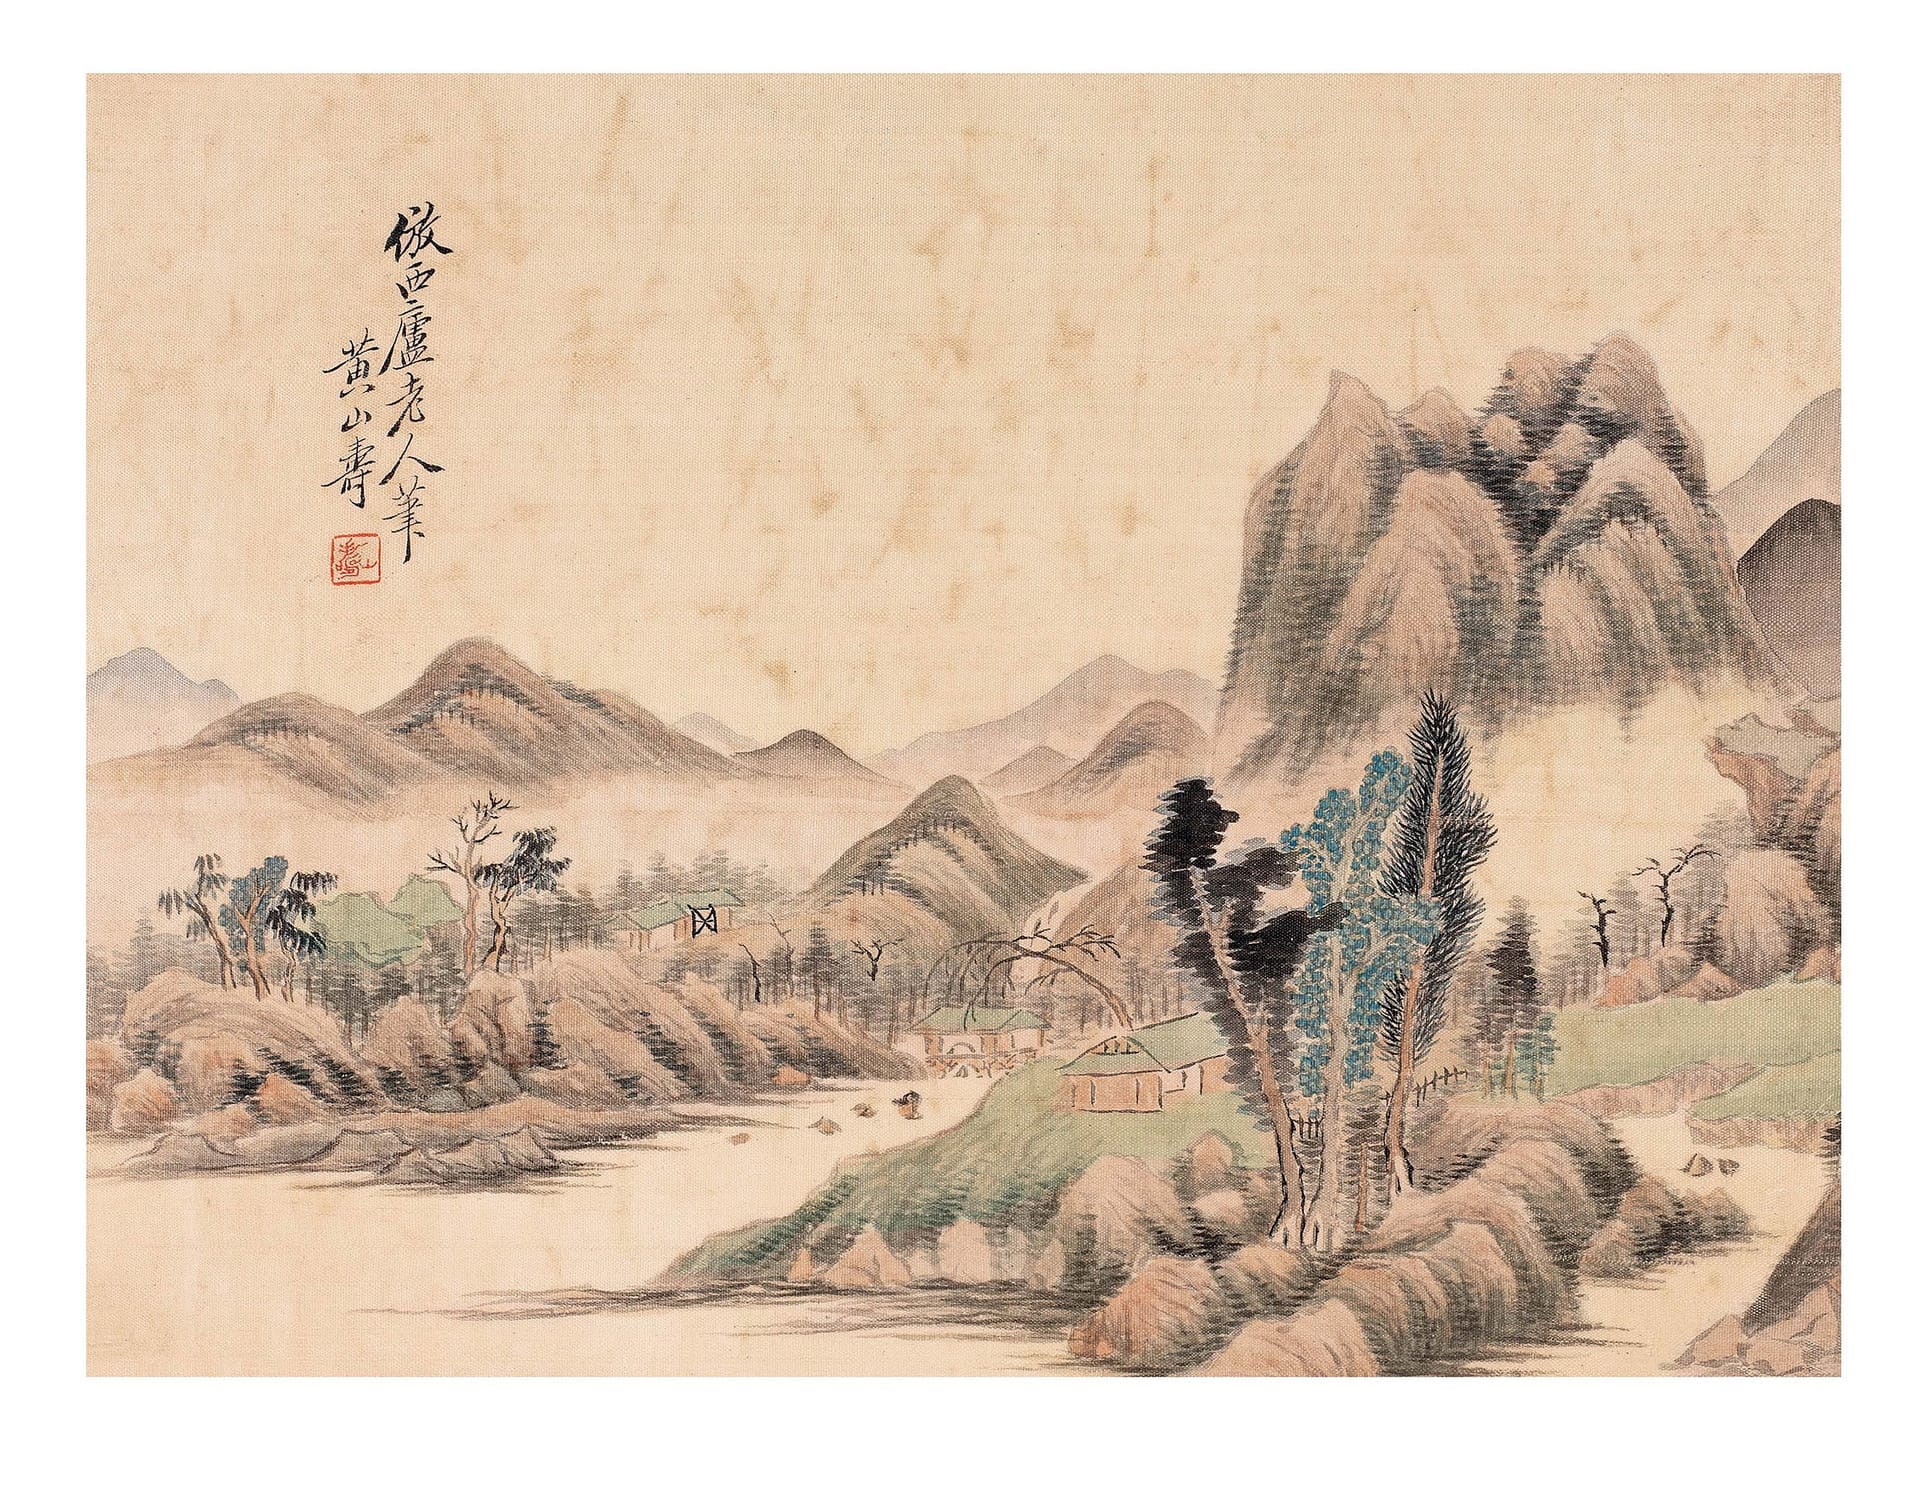 倣西廬老人筆
黃山壽